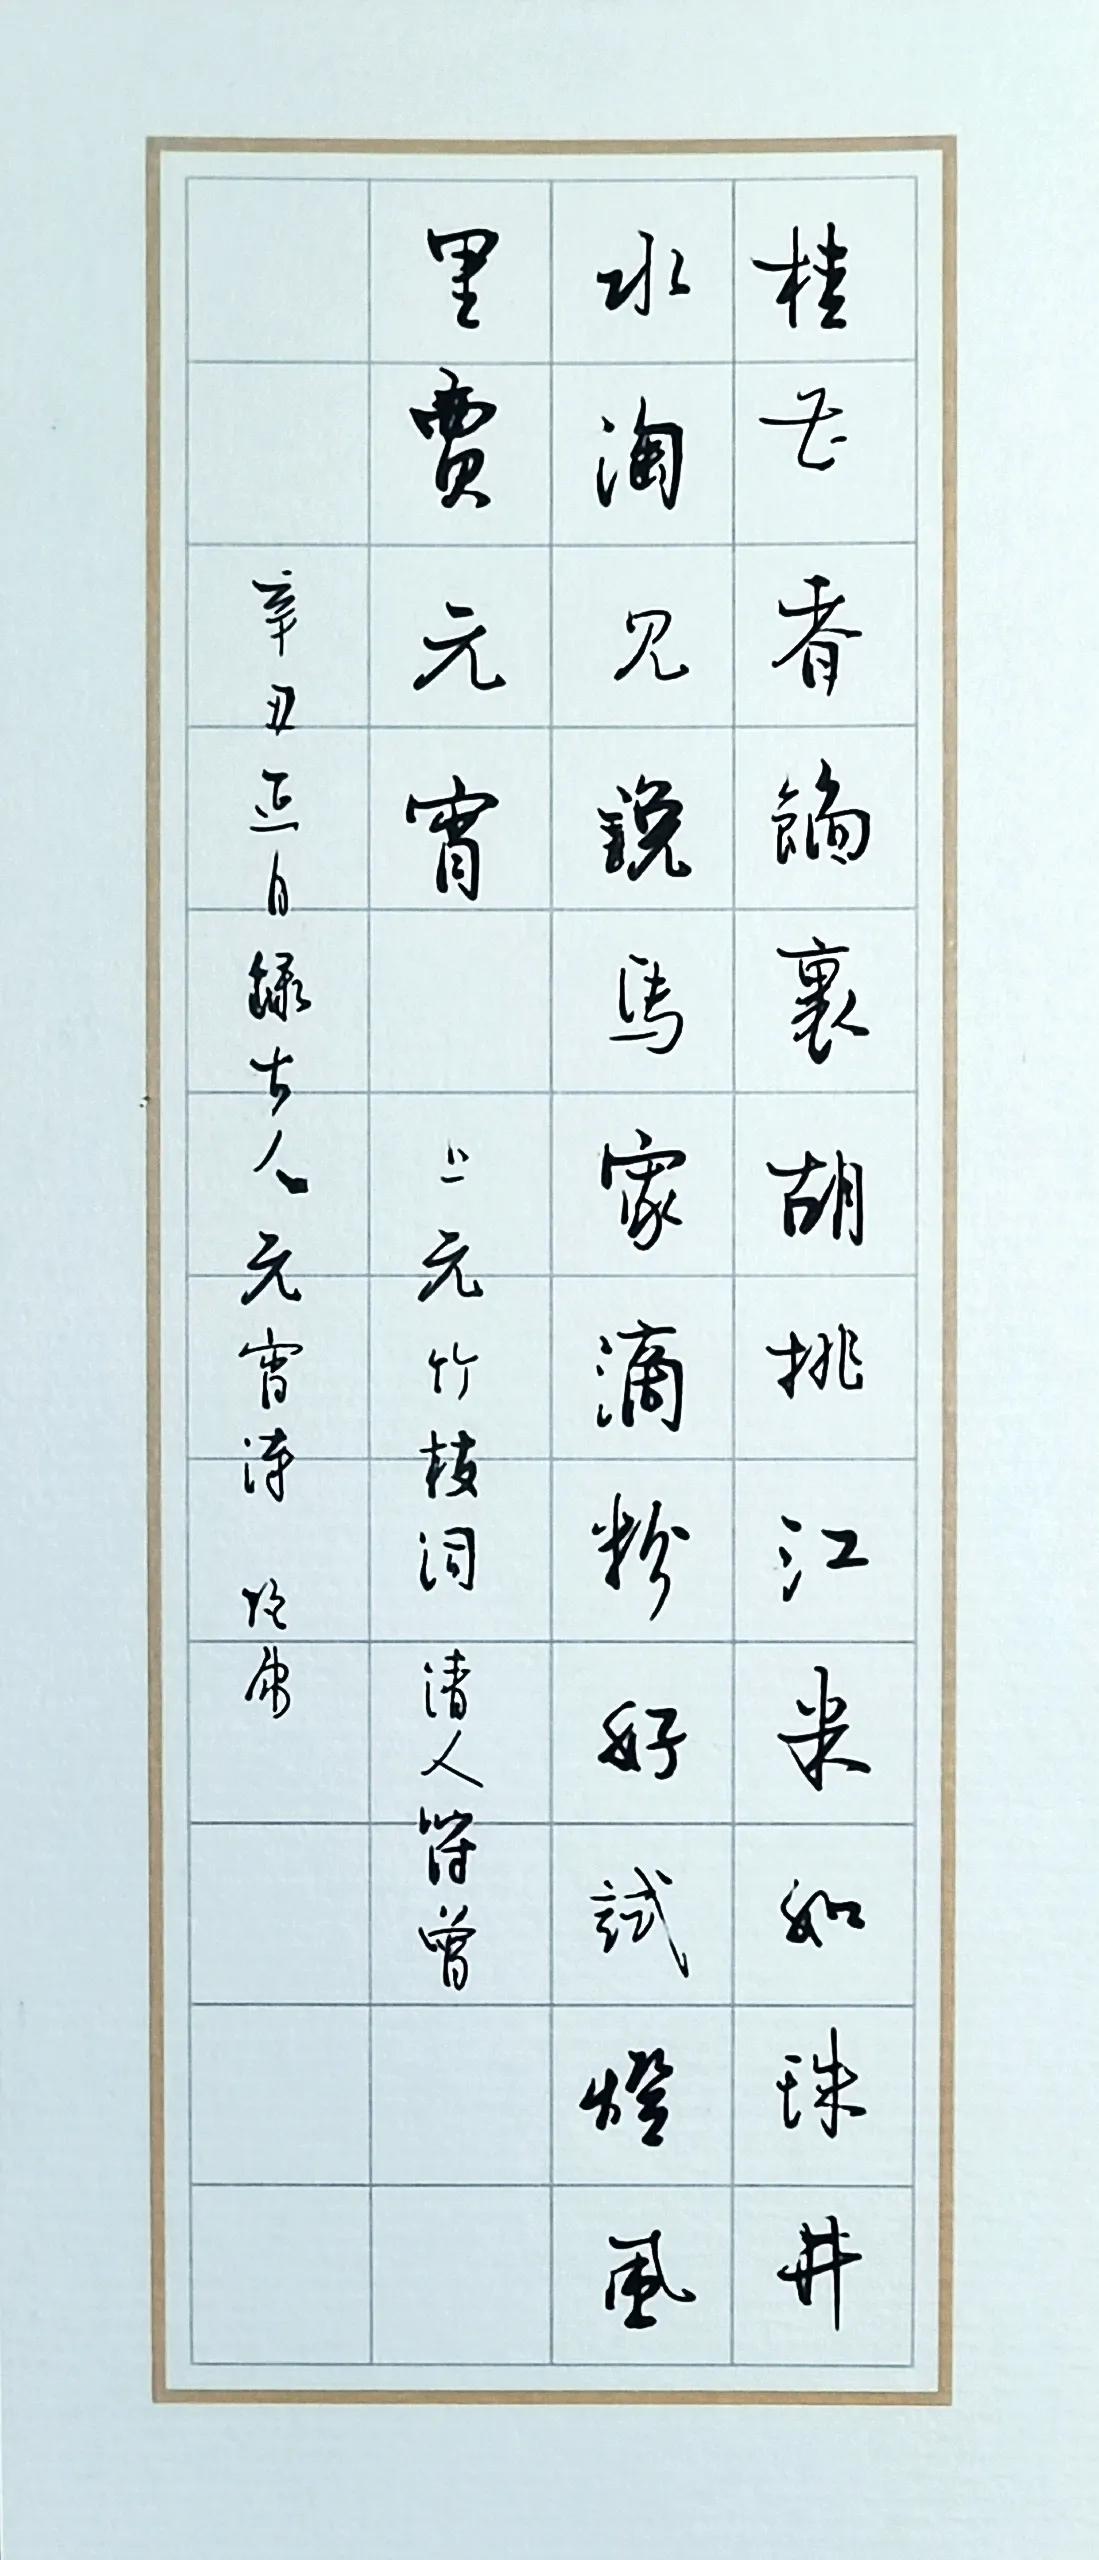 桂花香餡裹胡桃江米如珠井
水淘见說馬家滴粉好試燈風
里賣元宵 上元竹枝词 清人符曾
辛丑正月録古人元宵诗